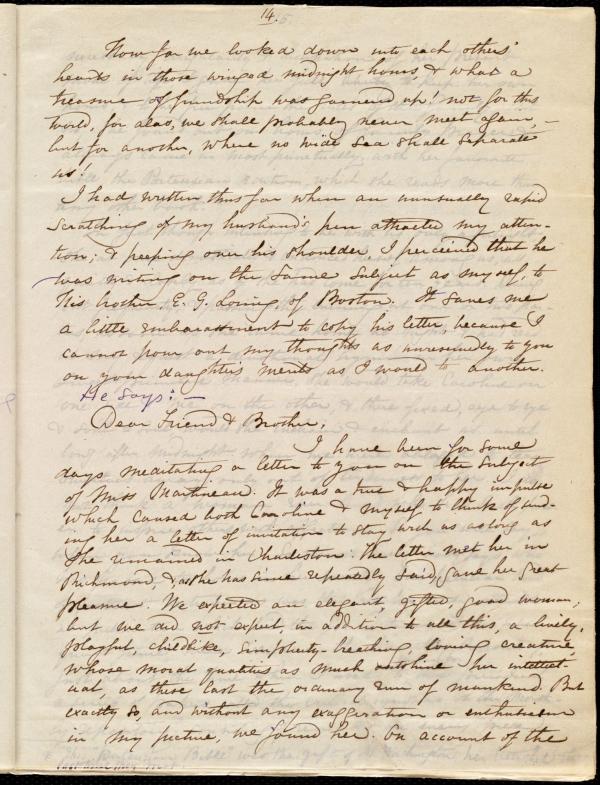 14.
How far we looked down into each others'
hearts in those winged midnight hours, & what a
treasure of friendship was garnered up! not for this
world, for alas, we shall probably never meet again, -
but for another, where no wide sea shall separate
us!
I had written thus far when an unusually rapid
scratching of my husband's pen attracted my atten-
tion; & peeping over his shoulder, I perceived that he
was writing on the same subject as myself, to
his brother, E. G. Loring, of Boston. It saves me
a little embarassment to copy his letter, because I
cannot pour out my thoughts as unreservedly to you
on your daughter's merits as I would to another.
He says: -
Dear Friend & Brother,
I have been for some
days meditating a letter to you on the subject
of Miss Martineau. It was a true & happy impulse
which caused both Caroline & myself to think of send-
ing her a letter of invitation to stay with us as long as
she remained in Charleston. The letter met her in
Richmond, & as she has since repeatedly said, gave her great
pleasure. We expected an elegant, gifted, good woman;
but we did not expect, in addition to all this, a lively,
playful, childlike, simplicity-breathing, loving creature,
whose moral qualities as much outshine her intellect-
ual, as these last the ordinary run of mankind. But
exactly so, and without any exaggeration or enthusiasm
in my picture, we found her. On account of the